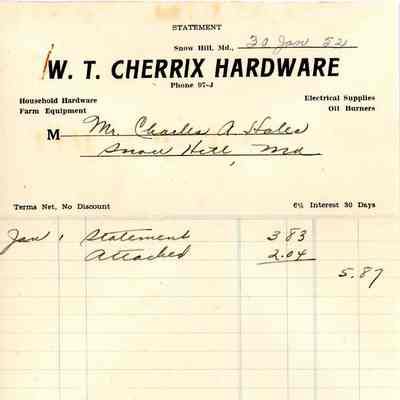 STATEMENT
Snow Hill, Md., 30 Jan 52
W. T. CHERRIX HARDWARE
Phone 97-J
Household Hardware Electrical Supplies
Farm Equipment Oil Burners
M Mr. Charles A Hales
Snow Hill, Md
Terms Net, No Discount 6% Interest 30 Days
Jan 1 Statement 3 83
Attached 2.04
5.87